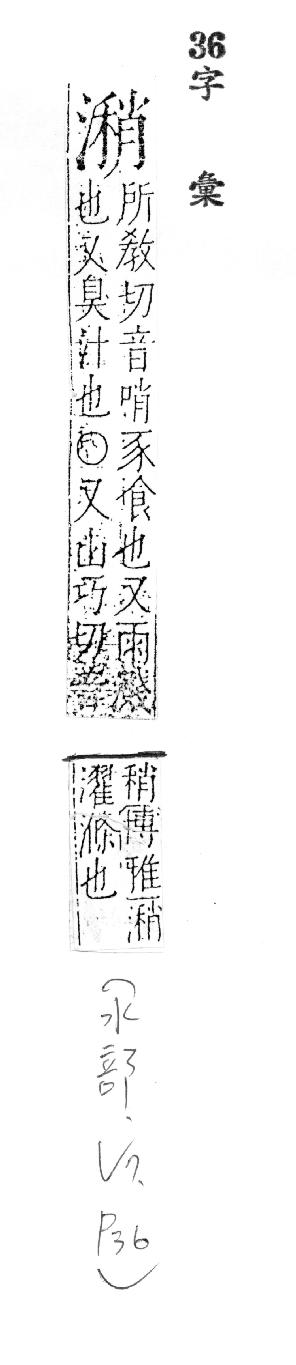 36字彙
潲
所教切音哨豕食也又雨濺
也又臭汁也○又山巧切音
稍博雅潲
濯滌也
(水部、 P36)